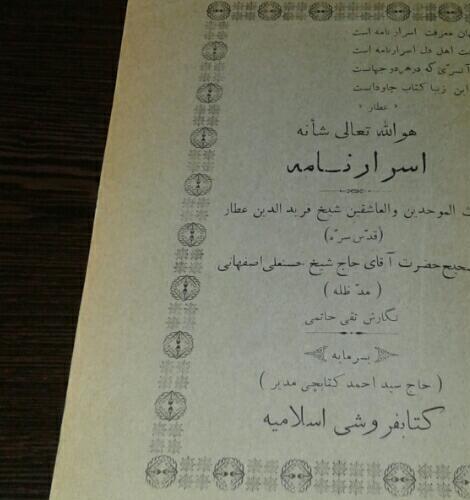 ان معرفت اسرار نامه است
ت اهل دل اسرارنامه است
آنسری که در هر دو جهاست
این زیبا کتاب جاوداست
« عطار »
هوالله تعالی شأنه
اسرار نامه
الموحدین والعاشقین شیخ فرید الدین عطار
(قدّس سرّه)
حیح حضرت آقای حاج شیخ حسنعلی اصفهانی
( مدّ ظله )
نگارش تقی حاتمی
بسرمایه
( حاج سید احمد کتابچی مدیر )
کتابفروشی اسلامیه